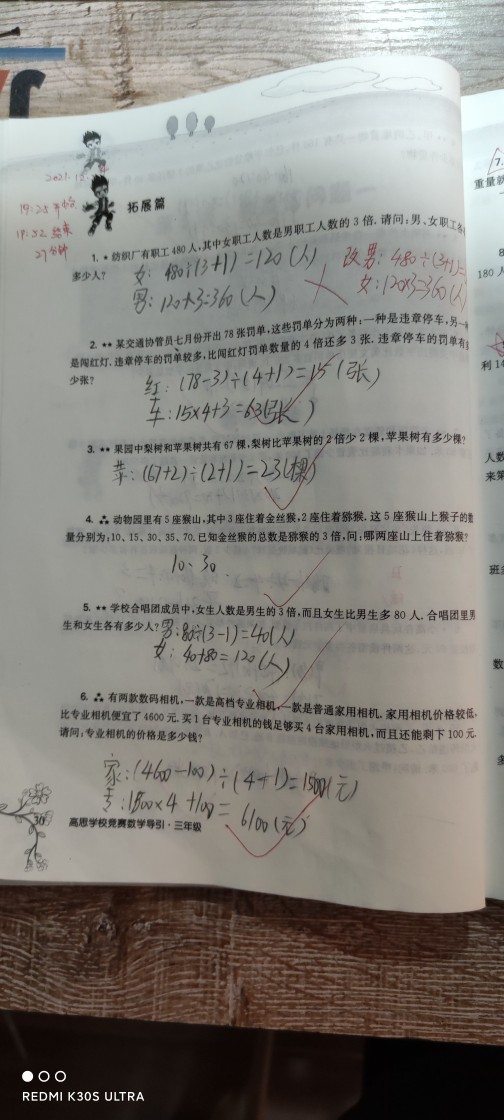 2021.12.
19:25 开始
19:52 结束
27分钟
拓展篇
1. ★ 纺织厂有职工 480 人,其中女职工人数是男职工人数的 3 倍. 请问:男、女职工各
多少人?
女: 480÷(3+1)=120(人)
男: 120×3=360(人)
改男: 480÷(3+1)=
女: 120×3=360(人)
2. ★★ 某交通协管员七月份开出 78 张罚单,这些罚单分为两种:一种是违章停车,另一
是闯红灯. 违章停车的罚单较多,比闯红灯罚单数量的 4 倍还多 3 张. 违章停车的罚单有
少张?
红: (78-3)÷(4+1)=15(张)
车: 15×4+3=63(张)
3. ★★ 果园中梨树和苹果树共有 67 棵,梨树比苹果树的 2 倍少 2 棵,苹果树有多少棵?
苹: (67+2)÷(2+1)=23(棵)
4. 动物园里有 5 座猴山,其中 3 座住着金丝猴,2 座住着猕猴. 这 5 座猴山上猴子的数
量分别为:10、15、30、35、70. 已知金丝猴的总数是猕猴的 3 倍,问:哪两座山上住着猕猴?
10、30.
5. ★★ 学校合唱团成员中,女生人数是男生的 3 倍,而且女生比男生多 80 人. 合唱团里男
生和女生各有多少人?
男: 80÷(3-1)=40(人)
女: 40+80=120(人)
6. 有两款数码相机,一款是高档专业相机,一款是普通家用相机. 家用相机价格较低,
比专业相机便宜了 4600 元. 买 1 台专业相机的钱足够买 4 台家用相机,而且还能剩下 100 元.
请问:专业相机的价格是多少钱?
家: (4600-100)÷(4-1)=1500(元)
专: 1500×4+100=6100(元)
30
高思学校竞赛数学导引·三年级
7.
重量就
8
180 人
利 14
人数
来第
班多
数
多
REDMI K30S ULTRA